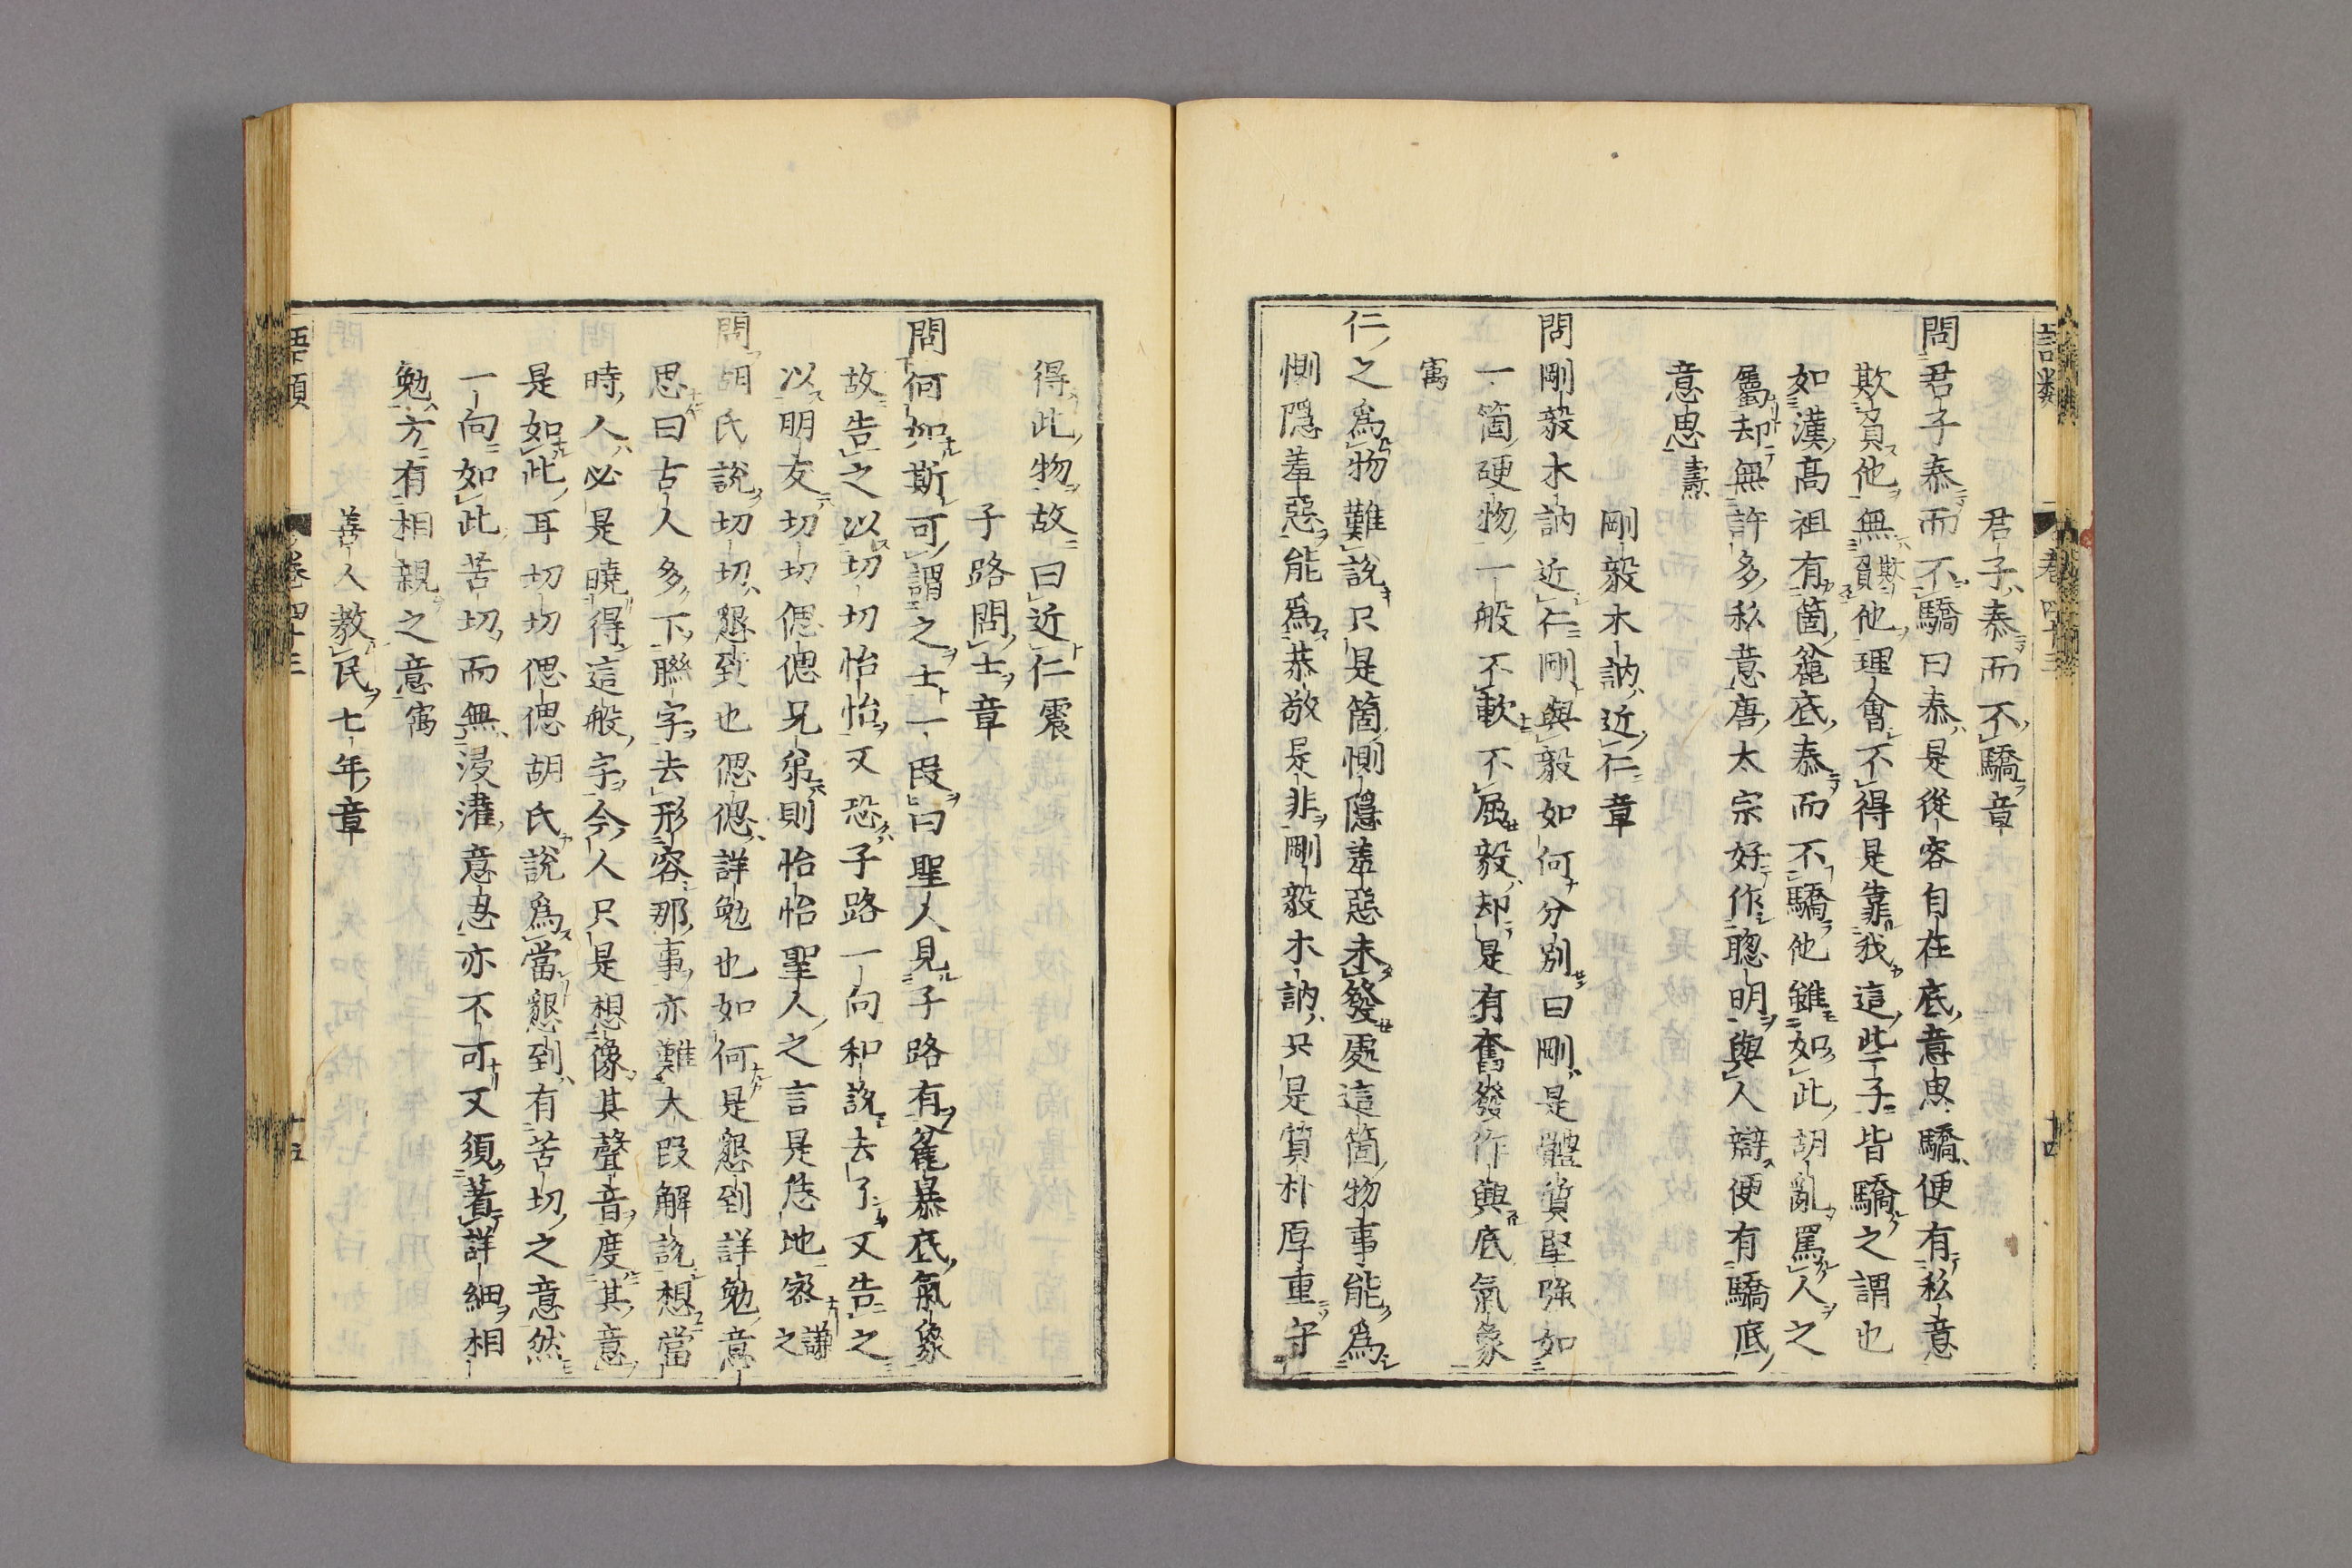 君子泰而不驕章
問君子泰而不驕曰泰是從容自在底意思驕便有私意
欺負他無欺負他理會不得是靠我這些子皆驕之謂也
如漢高祖有箇麄底泰而不驕他雖如此胡亂罵人之
屬却無許多私意唐太宗好作聰明與人辯便有驕底
意思燾
剛毅木訥近仁章
問剛毅木訥近仁剛與毅如何分別曰剛是體質堅強如
一箇硬物一般不軟不屈毅却是有奮發作興底氣象
寓
仁之為物難說只是箇惻隱羞惡未發處這箇物事能為
惻隱羞惡能為恭敬是非剛毅木訥只是質朴厚重守
得此物故曰近仁震
子路問士章
問何如斯可謂之士一段曰聖人見子路有麄暴底氣象
故告之以切切怡怡又恐子路一向和說去了又告之
以朋友切切偲偲兄弟則怡怡聖人之言是恁地密謙之
問胡氏說切切懇到也偲偲詳勉也如何是懇到詳勉意
思曰古人多下聯字去形容那事亦難大段解說想當
時人必是曉得這般字今人只是想像其聲音度其意
是如此耳切切偲偲胡氏說為當懇到有苦切之意然
一向如此苦切而無浸灌意思亦不可又須着詳細相
勉方有相親之意寓
善人教民七年章
語類 卷四十三 十四
語類 卷四十三 十五